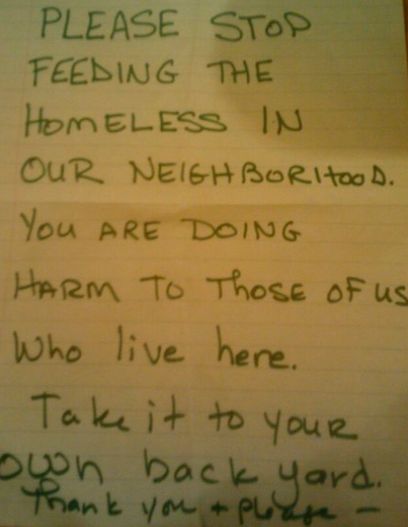 PLEASE STOP
FEEDING THE
HOMELESS IN
OUR NEIGHBORHOOD.
YOU ARE DOING
HARM TO THOSE OF US
Who live here.
Take it to YOUR
own back yard.
Thank you + please -